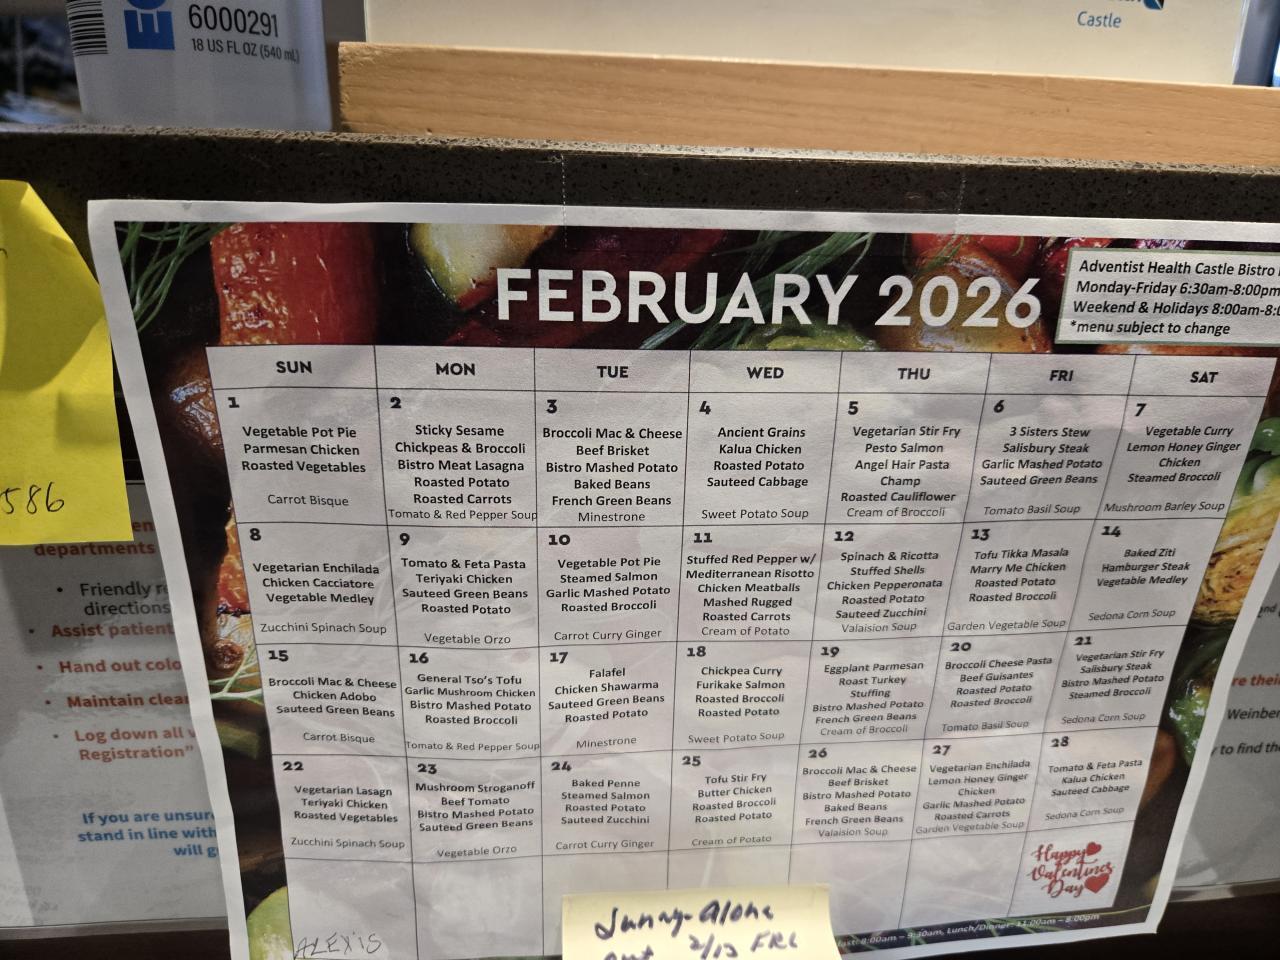 6000291
18 US FL OZ (540 mL)
Castle
586
FEBRUARY 2026
Adventist Health Castle Bistro
Monday-Friday 6:30am-8:00pm
Weekend & Holidays 8:00am-8:
*menu subject to change
SUN MON TUE WED THU FRI SAT
1
Vegetable Pot Pie
Parmesan Chicken
Roasted Vegetables
Carrot Bisque
2
Sticky Sesame
Chickpeas & Broccoli
Bistro Meat Lasagna
Roasted Potato
Roasted Carrots
Tomato & Red Pepper Soup
3
Broccoli Mac & Cheese
Beef Brisket
Bistro Mashed Potato
Baked Beans
French Green Beans
Minestrone
4
Ancient Grains
Kalua Chicken
Roasted Potato
Sauteed Cabbage
Sweet Potato Soup
5
Vegetarian Stir Fry
Pesto Salmon
Angel Hair Pasta
Champ
Roasted Cauliflower
Cream of Broccoli
6
3 Sisters Stew
Salisbury Steak
Garlic Mashed Potato
Sauteed Green Beans
Tomato Basil Soup
7
Vegetable Curry
Lemon Honey Ginger
Chicken
Steamed Broccoli
Mushroom Barley Soup
8
Vegetarian Enchilada
Chicken Cacciatore
Vegetable Medley
Zucchini Spinach Soup
9
Tomato & Feta Pasta
Teriyaki Chicken
Sauteed Green Beans
Roasted Potato
Vegetable Orzo
10
Vegetable Pot Pie
Steamed Salmon
Garlic Mashed Potato
Roasted Broccoli
Carrot Curry Ginger
11
Stuffed Red Pepper w/
Mediterranean Risotto
Chicken Meatballs
Mashed Rugged
Roasted Carrots
Cream of Potato
12
Spinach & Ricotta
Stuffed Shells
Chicken Pepperonata
Roasted Potato
Sauteed Zucchini
Valaision Soup
13
Tofu Tikka Masala
Marry Me Chicken
Roasted Potato
Roasted Broccoli
Garden Vegetable Soup
14
Baked Ziti
Hamburger Steak
Vegetable Medley
Sedona Corn Soup
15
Broccoli Mac & Cheese
Chicken Adobo
Sauteed Green Beans
Carrot Bisque
16
General Tso's Tofu
Garlic Mushroom Chicken
Bistro Mashed Potato
Roasted Broccoli
Tomato & Red Pepper Soup
17
Falafel
Chicken Shawarma
Sauteed Green Beans
Roasted Potato
Minestrone
18
Chickpea Curry
Furikake Salmon
Roasted Broccoli
Roasted Potato
Sweet Potato Soup
19
Eggplant Parmesan
Roast Turkey
Stuffing
Bistro Mashed Potato
French Green Beans
Cream of Broccoli
20
Broccoli Cheese Pasta
Beef Guisantes
Roasted Potato
Roasted Broccoli
Tomato Basil Soup
21
Vegetarian Stir Fry
Salisbury Steak
Bistro Mashed Potato
Steamed Broccoli
Sedona Corn Soup
22
Vegetarian Lasagn
Teriyaki Chicken
Roasted Vegetables
Zucchini Spinach Soup
23
Mushroom Stroganoff
Beef Tomato
Bistro Mashed Potato
Sauteed Green Beans
Vegetable Orzo
24
Baked Penne
Steamed Salmon
Roasted Potato
Sauteed Zucchini
Carrot Curry Ginger
25
Tofu Stir Fry
Butter Chicken
Roasted Broccoli
Roasted Potato
Cream of Potato
26
Broccoli Mac & Cheese
Beef Brisket
Bistro Mashed Potato
Baked Beans
French Green Beans
Valaision Soup
27
Vegetarian Enchilada
Lemon Honey Ginger
Chicken
Garlic Mashed Potato
Roasted Carrots
Garden Vegetable Soup
28
Tomato & Feta Pasta
Kalua Chicken
Sauteed Cabbage
Sedona Corn Soup
Happy
Valentine's
Day
8:00am – 9:30am, Lunch/Dinner: 11:00am – 8:00pm
ALEXIS
2/13 FRI
departments
• Friendly
directions
• Assist patient
• Hand out colo
• Maintain clea
• Log down all
Registration"
If you are unsur
stand in line with
will g
Weinber
to find the